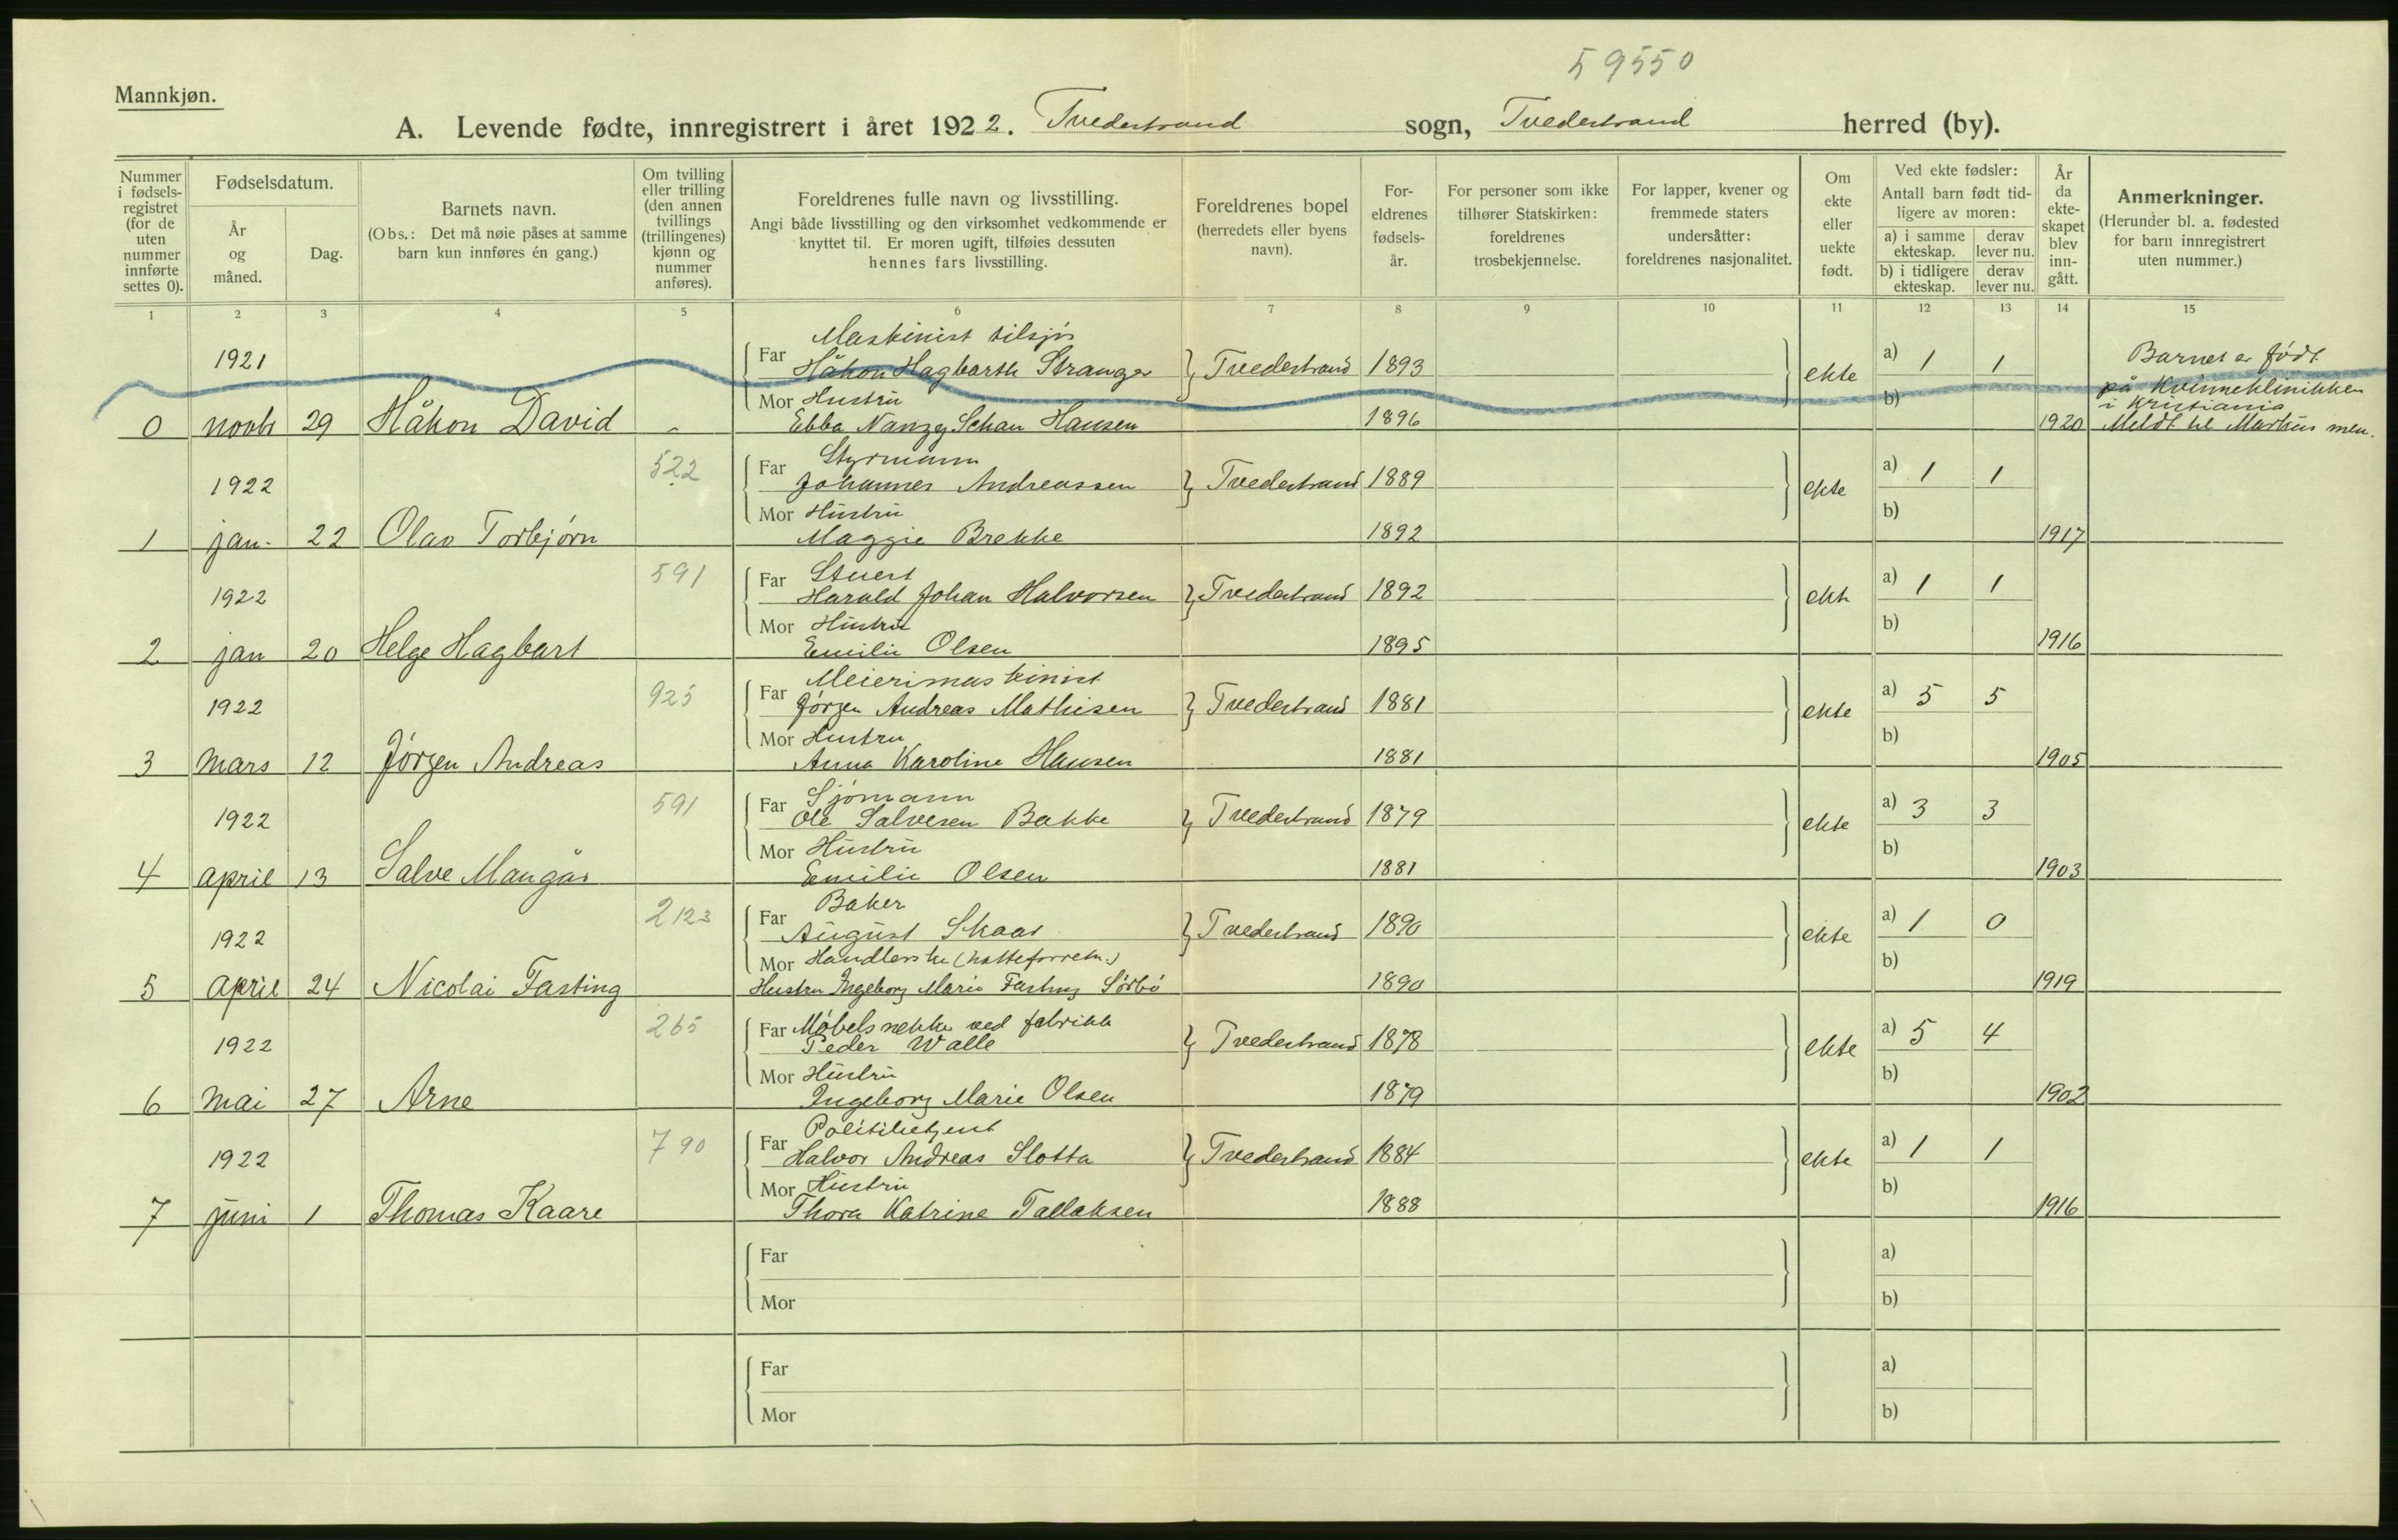 59550
Mannkjøn.
A. Levende fødte, innregistrert i året 1922. Tvedestrand sogn, Tvedestrand herred (by).
Nummer i fødsels-registret (for de uten nummer innførte settes 0).
Fødselsdatum.
År og måned.
Dag.
Barnets navn.
(Obs.: Det må nøie påses at samme barn kun innføres én gang.)
Om tvilling eller trilling (den annen tvillings (trillingenes) kjønn og nummer anføres).
Foreldrenes fulle navn og livsstilling.
Angi både livsstilling og den virksomhet vedkommende er knyttet til. Er moren ugift, tilføies dessuten hennes fars livsstilling.
Foreldrenes bopel (herredets eller byens navn).
For-eldrenes fødsels-år.
For personer som ikke tilhører Statskirken: foreldrenes trosbekjennelse.
For lapper, kvener og fremmede staters undersåtter: foreldrenes nasjonalitet.
Om ekte eller uekte født.
Ved ekte fødsler: Antall barn født tid-ligere av moren:
a) i samme ekteskap. derav lever nu.
b) i tidligere ekteskap. derav lever nu.
År da ekte-skapet blev inn-gått.
Anmerkninger.
(Herunder bl. a. fødested for barn innregistrert uten nummer.)
1 2 3 4 5 6 7 8 9 10 11 12 13 14 15
Maskinist tilsjøs
1921 Far Håkon Hagbarth Stranger Tvedestrand 1893 ekte a) 1 1 Barnet er født
på Kvinneklinikken
i Kristiania
Mor Hustru b)
0 novbr 29 Håkon David Ebba Nanzy Schau Hansen 1896 1920 Meldt til Markus men.
522 Far Styrmann
1922 Johannes Andreassen Tvedestrand 1889 ekte a) 1 1
Mor Hustru b)
1 jan. 22 Olav Torbjørn Maggie Brekke 1892 1917
591 Far Stuert
1922 Harald Johan Halvorsen Tvedestrand 1892 ekte a) 1 1
Mor Hustru b)
2 jan 20 Helge Hagbart Emilie Olsen 1895 1916
925 Far Meierimaskinist
1922 Jörgen Andreas Mathisen Tvedestrand 1881 ekte a) 5 5
Mor Hustru b)
3 mars 12 Jörgen Andreas Anna Karoline Hansen 1881 1905
591 Far Sjömann
1922 Ole Salvesen Bakke Tvedestrand 1879 ekte a) 3 3
Mor Hustru b)
4 april 13 Salve Mangår Emilie Olsen 1881 1903
2123 Far Baker
1922 August Skaar Tvedestrand 1890 ekte a) 1 0
Mor Handlerske (hatteforretn.) b)
5 april 24 Nicolai Fasting Hustru Ingeborg Marie Fasting Sörbö 1890 1919
265 Far Møbelsnekker ved fabrikk
1922 Peder Walle Tvedestrand 1878 ekte a) 5 4
Mor Hustru b)
6 mai 27 Arne Ingeborg Marie Olsen 1879 1902
790 Far Politibetjent
1922 Halvor Andreas Slotta Tvedestrand 1884 ekte a) 1 1
Mor Hustru b)
7 juni 1 Thomas Kaare Thora Katrine Tallaksen 1888 1916
Far a)
Mor b)
Far a)
Mor b)